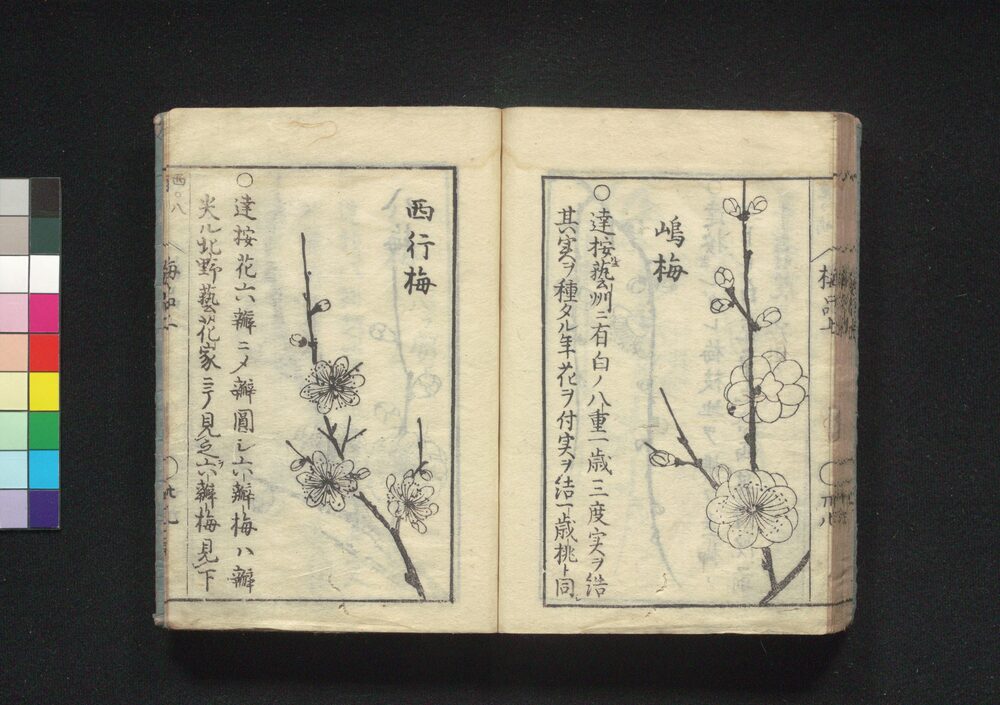 嶋梅
○達按藝州ニ有白ノ八重一歳三度実ヲ結
其実ヲ種タル年花ヲ付実ヲ結一歳桃ト同
梅品上
西行梅
○達按花六瓣ニメ瓣圓シ六瓣梅ハ瓣
尖ル北野藝花家ニテ見之六瓣梅見下
梅品上